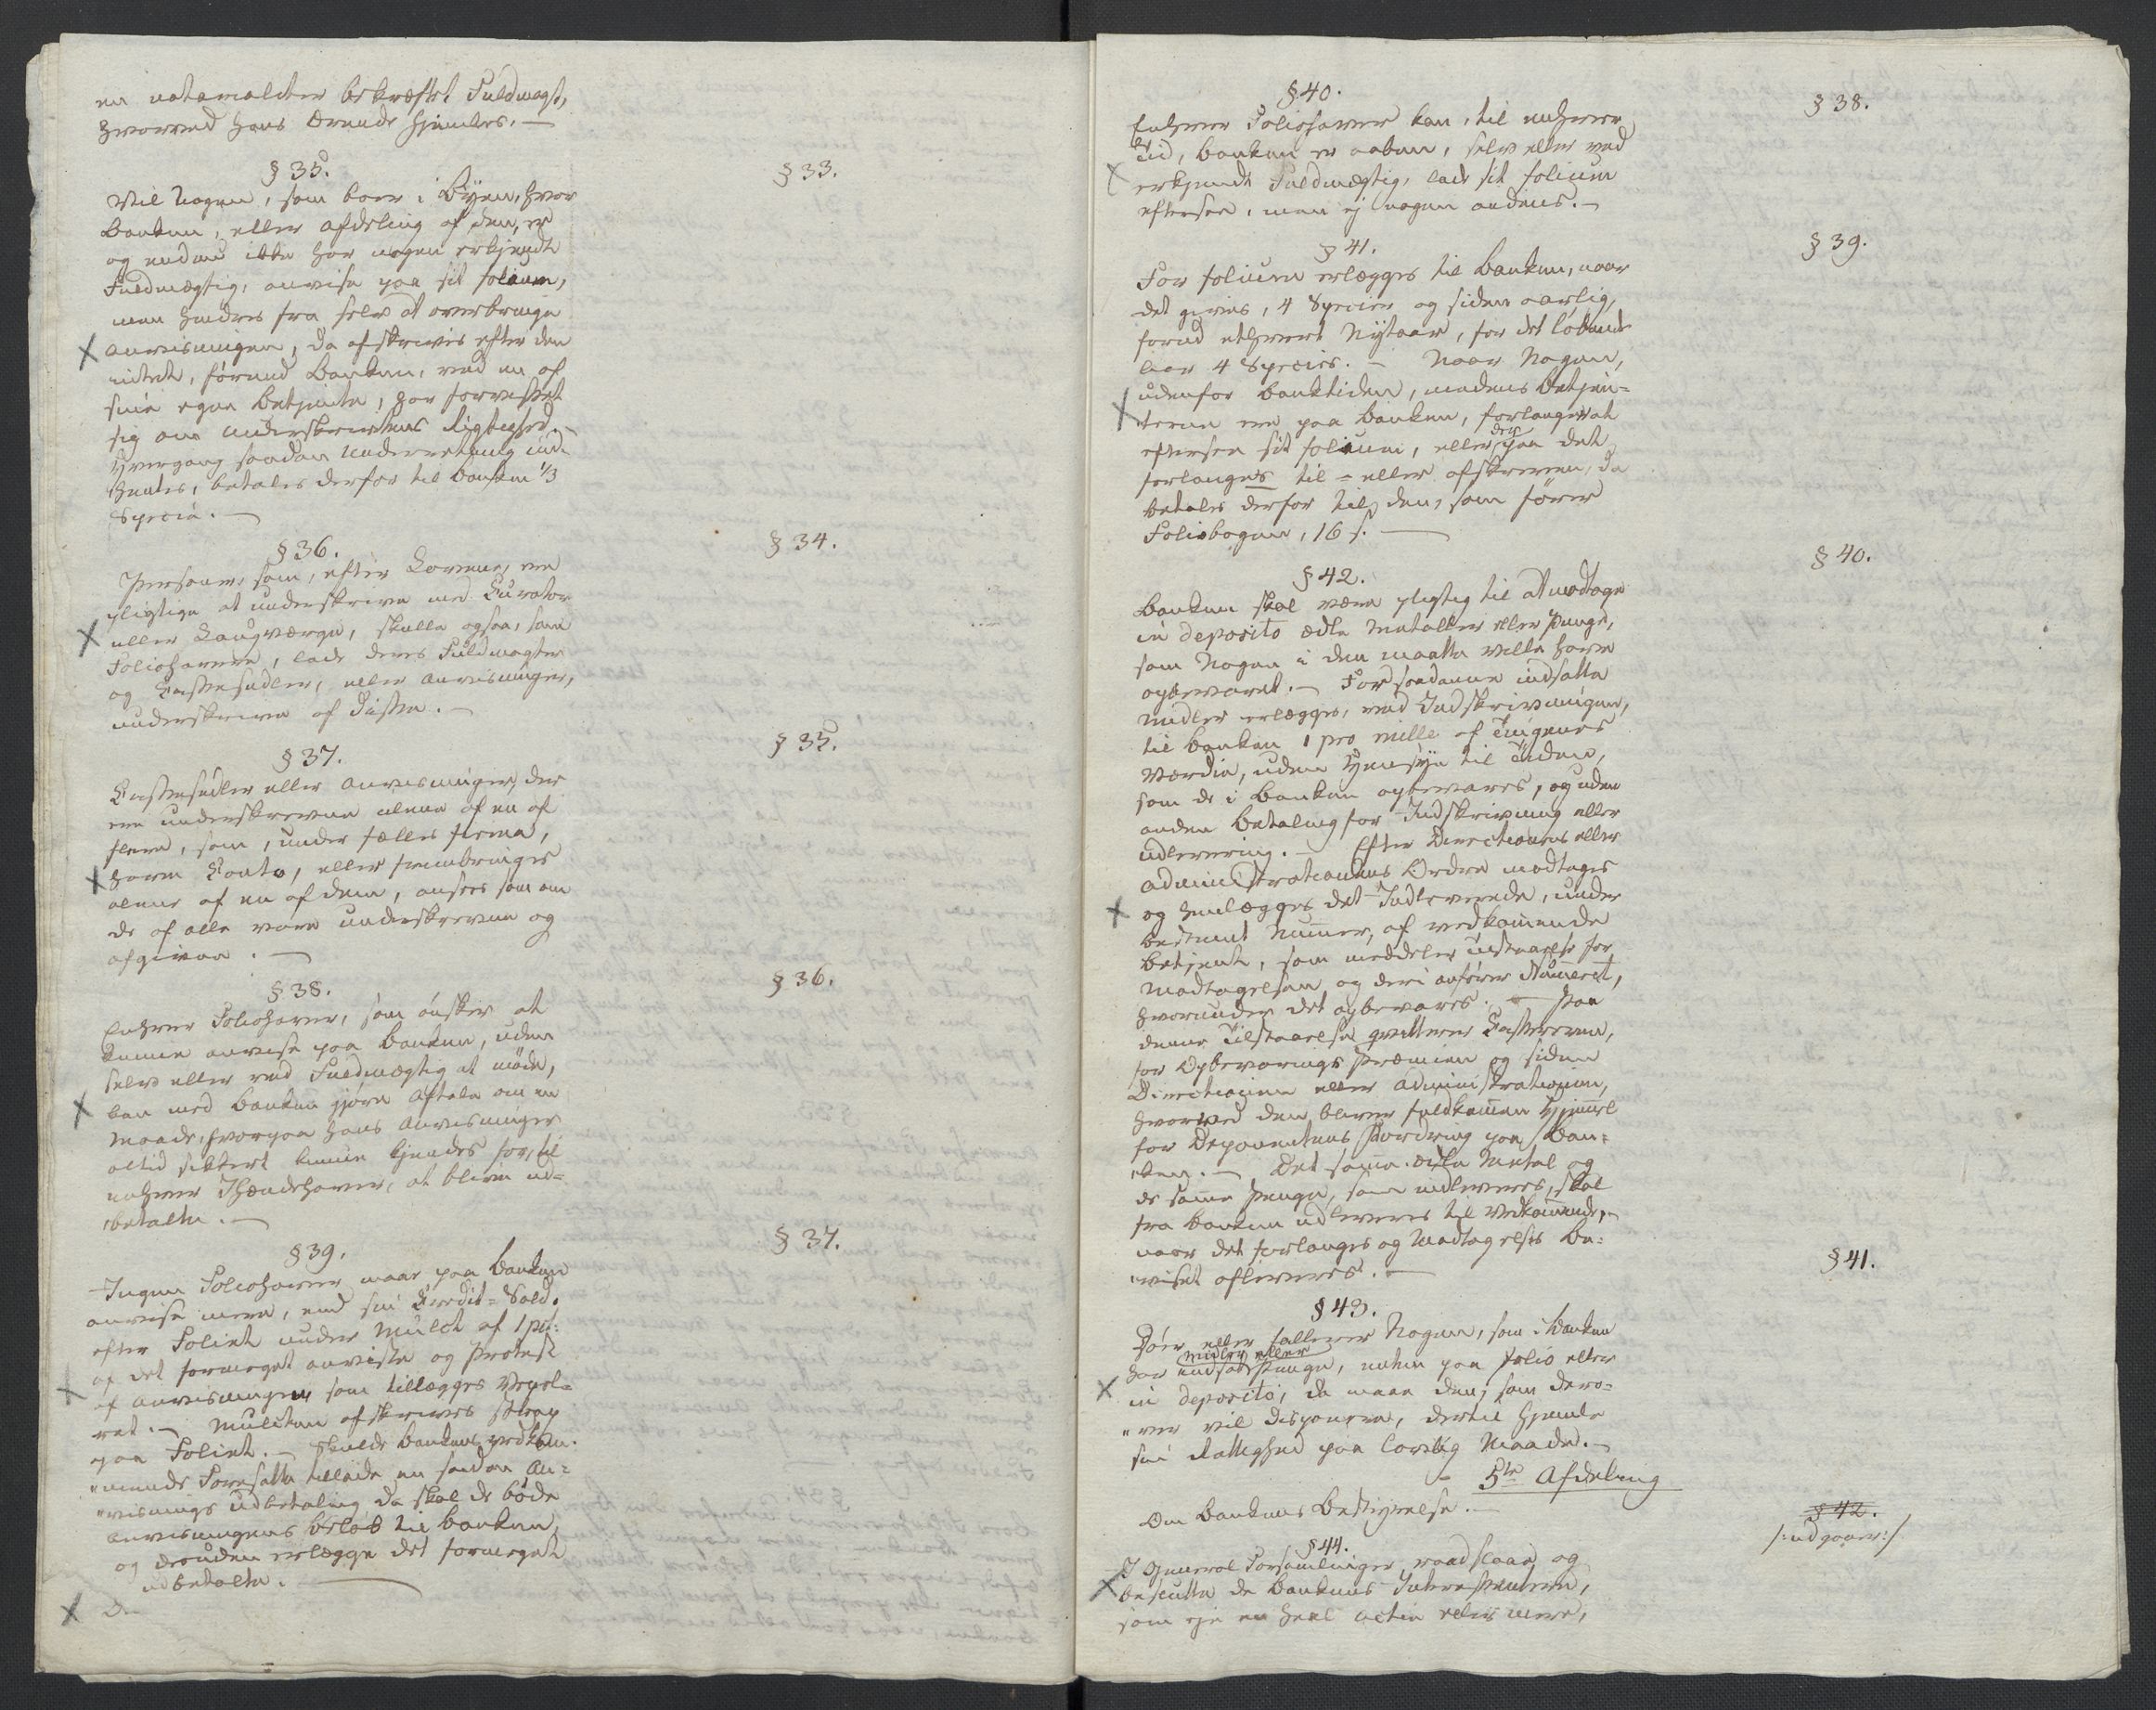 en notarialiter bekræftet Fuldmagt,
hvorved hans Ærende hjemles. —
§ 35.
Vil Nogen, som boer i Byen, hvor
Banken, eller Afdeling af den, er
og endnu ikke har nogen erkjendt
Fuldmægtig, anvise paa sit folium,
men hindres fra selv at overbringe
Anvisningen, da afskrives efter den
intet, førend Banken, ved en af
sine egne Betjente, har forvisset
sig om Underskriftens Rigtighed. —
Hvergang saadan Underretning ind-
hentes, betales derfor til Banken 1/3
Specie. —
§ 36.
Personer som, efter Lovene, ere
pligtige at underskrive med Curator
eller Laugværge, skulle ogsaa, som
Foliohavere, lade deres Fuldmagter
og Cassesedler, eller Anvisninger,
underskrive af disse. —
§ 37.
Cassesedler eller Anvisninger, der
ere underskrevne alene af en af
flere, som, under fælles firma,
have Conto, eller frembringes
alene af en af dem, ansees som om
de af alle vare underskrevne og
afgivne. —
§ 38.
Enhver Foliohaver, som ønsker at
kunne anvise paa Banken, uden
selv eller ved Fuldmægtig at møde,
kan med Banken gjøre Aftale om en
Maade, hvorpaa hans Anvisninger
altid sikkert kunne kjendes for, til
enhver Ihændehaver, at blive ud-
betalte. —
§ 39.
Ingen Foliohaver maae paa Banken
anvise mere, end sin Credit-Saldo
efter Foliet under Mulct af 1 pCt.
af det formeget anviste og Protest
af Anvisningen som tillægges Vexel-
ret. — Mulcten afskrives strax
paa Foliet. — Skulde Bankens vedkom-
"mende Foresatte tillade en saadan An-
"visnings Udbetaling da skal de bøde
Anvisningens Beløb til Banken,
og desuden erlægge det formeget
udbetalte. —
§ 33.
§ 34.
§ 35.
§ 36.
§ 37.
§ 40.
Enhver Foliohaver kan, til enhver
Tid, Banken er aaben, selv eller ved
erkjendt Fuldmægtig, lade sit folium
eftersee, men ej nogen andens. —
§ 41.
For folium erlægges til Banken, naar
det gives, 4 Species og siden aarlig,
forud ethvert Nytaar, for det løbende
Aar 4 Species. — Naar Nogen,
udenfor Banktiden, medens Betjen-
"terne ere paa Banken, forlanger at
eftersee sit folium, eller der paa det
forlanges til- eller afskreven, da
betales derfor til den, som fører
Foliobogen, 16 s. —
§ 42.
Banken skal være pligtig til at modtage
in deposito ædle Metaller eller Penge,
som Nogen i den maatte ville have
opbevaret. — For saadanne indsatte
Midler erlægges, ved Indskrivningen,
til Banken 1 pro mille af Tingenes
Værdie, uden Hensyn til Tiden,
som de i Banken opbevares, og uden
anden Betaling for Indskrivning eller
Udlevering. — Efter Directionens eller
Administrationens Ordre modtages
og henlægges det Indleverede, under
bestemt Numer, af vedkommende
Betjent, som meddeler Tilstaaelse for
Modtagelsen og deri anfører Numeret,
hvorunder det opbevares. — Paa
denne Tilstaaelse qvitterer Cassereren,
for Opbevarings Præmien og siden
Directionen eller Administrationen,
hvorved den bliver fuldkommen Hjemmel
for Deponentens Fordring paa Ban-
"ken. — Det samme ædle Metal og
de samme Penge, som indleveres, skal
fra Banken udleveres til Vedkommende, —
naar det forlanges og Modtagelses Be-
"viset afleveres. —
§ 43.
Døer eller fallerer Nogen, som i Banken
har indsat Midler eller Penge, enten paa folio eller
in deposito, da maae den, som dero-
"ver vil disponere, dertil hjemle
sin Rettighed paa lovlig Maade. —
5te Afdeling
Om Bankens Bestyrelse. —
§ 44.
I General Forsamlinger raadslaae og
beslutte de Bankens Interessentere,
som eje en heel Actie eller mere,
§ 38.
§ 39.
§ 40.
§ 41.
§ 42.
/: udgaaer :/